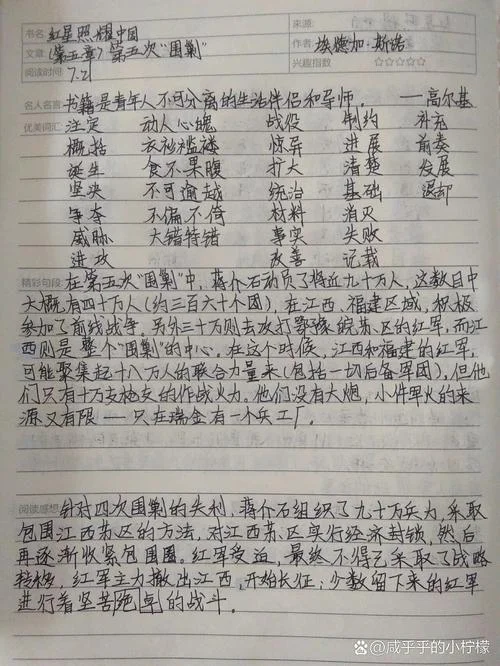 书名: 红星照耀中国 来源:
文章: (第五章)第五次"围剿" 作者: 埃德加·斯诺
阅读时间: 7.21 兴趣指数: ☆☆☆☆☆
名人名言: 书籍是青年人不可分离的生活伴侣和导师。 ——高尔基
优美词汇: 注定 动人心魄 战役 制约 补充
概括 衣衫褴褛 惊异 进展 前奏
诞生 食不果腹 扩大 清楚 发展
坚决 不可逾越 统治 基础 退却
争夺 不偏不倚 材料 消灭
威胁 大错特错 事实 失败
进攻 改善 记载
精彩句段: 在第五次"围剿"中,蒋介石动员了将近九十万人,这数目中
大概有四十万人(约三百六十个团),在江西、福建区域,积极
参加了前线战争。另外三十万则去攻打鄂豫皖苏区的红军,而江
西则是整个"围剿"的中心。在这个时候,江西和福建的红军,
可能聚集起十八万人的联合力量来(包括一切后备军团),但他
们只有十万支枪支的作战火力。他们没有大炮,小件军火的来
源又有限——只在瑞金有一个兵工厂。
阅读感想: 针对四次围剿的失利,蒋介石组织了九十万兵力,采取
包围江西苏区的方法,对江西苏区实行经济封锁,然后
再逐渐收紧包围圈。红军受迫,最终不得已采取了战略
转移,红军主力撤出江西,开始长征;少数留下来的红军
进行着坚苦绝卓的战斗。
@咸乎乎的小柠檬